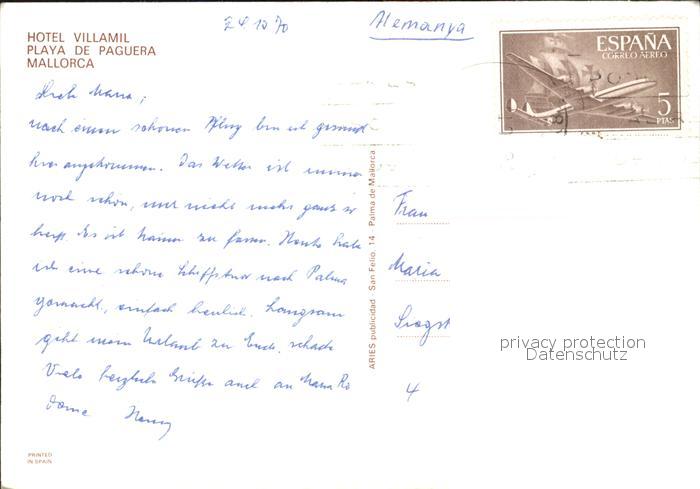 24 10 70
Alemanya
HOTEL VILLAMIL
PLAYA DE PAGUERA
MALLORCA
ESPAÑA
CORREO AEREO
5
PTAS
Liebe Mama;
nach einem schönen Flug bin ich gesund
hier angekommen. Das Wetter ist immer
noch schön, nur nicht mehr ganz so
heiß. Es ist kaum zu fassen. Heute habe
ich eine schöne Schiffstour nach Palma
gemacht, einfach herrlich. Langsam
geht mein Urlaub zu Ende, schade
Viele herzliche Grüße auch an
Deine
ARIES publicidad San Felio, 14 Palma de Mallorca
Frau
Maria
4
privacy protection
Datenschutz
PRINTED
IN SPAIN